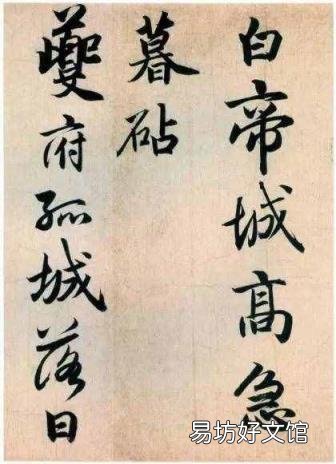 白帝城高急
暮砧
夔府孤城落日
易坊好文馆